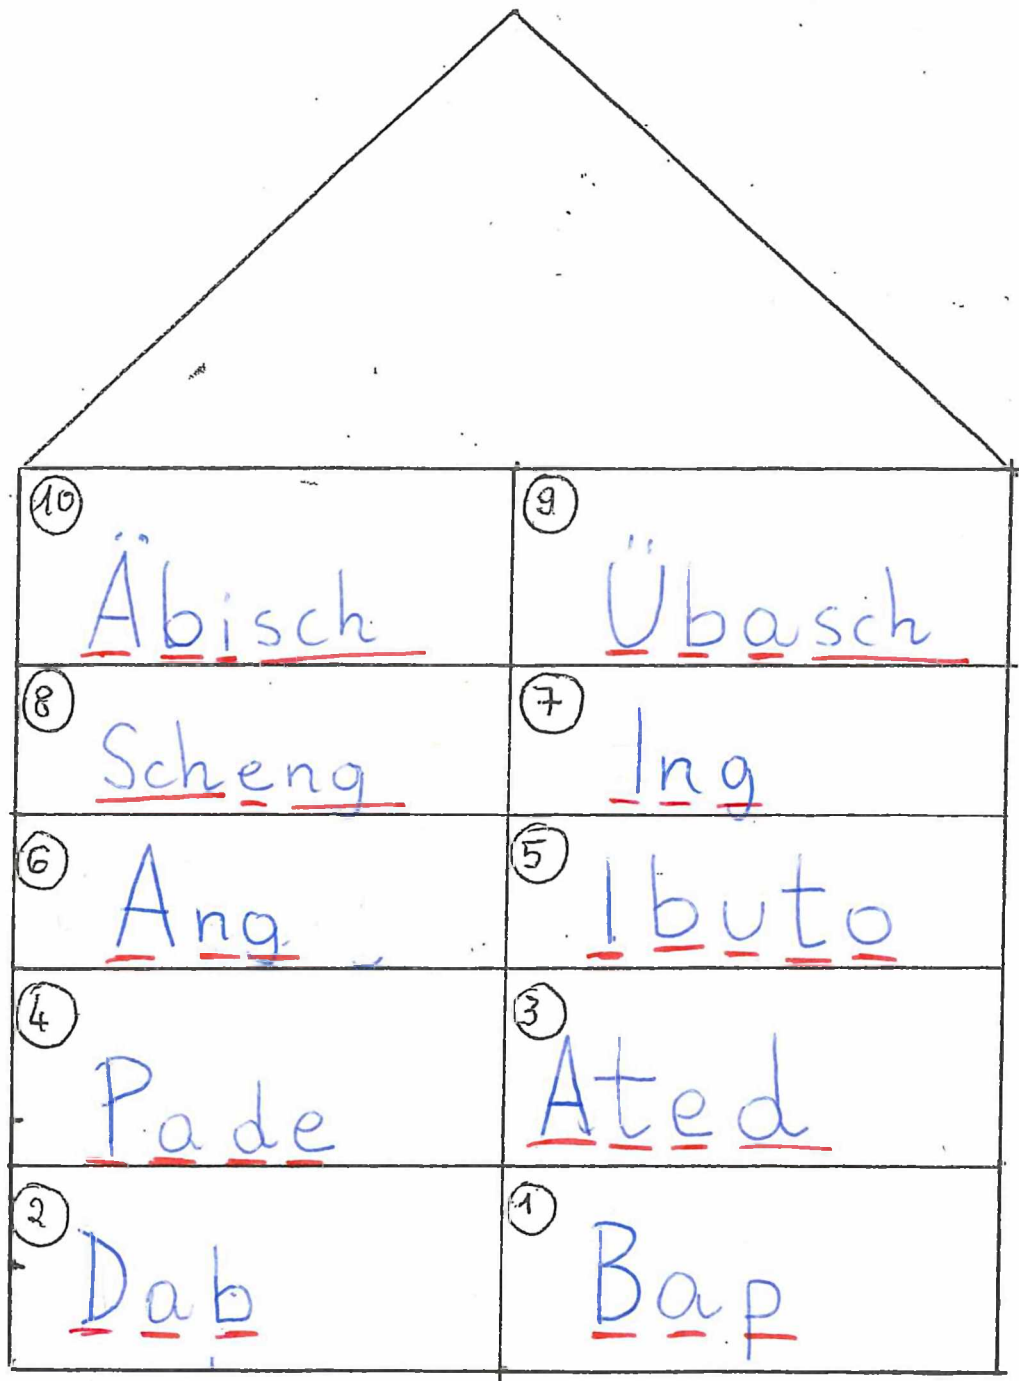 10 9
Äbisch Übasch
8 7
Scheng Ing
6 5
Ang Ibuto
4 3
Pade Ated
2 1
Dab Bap